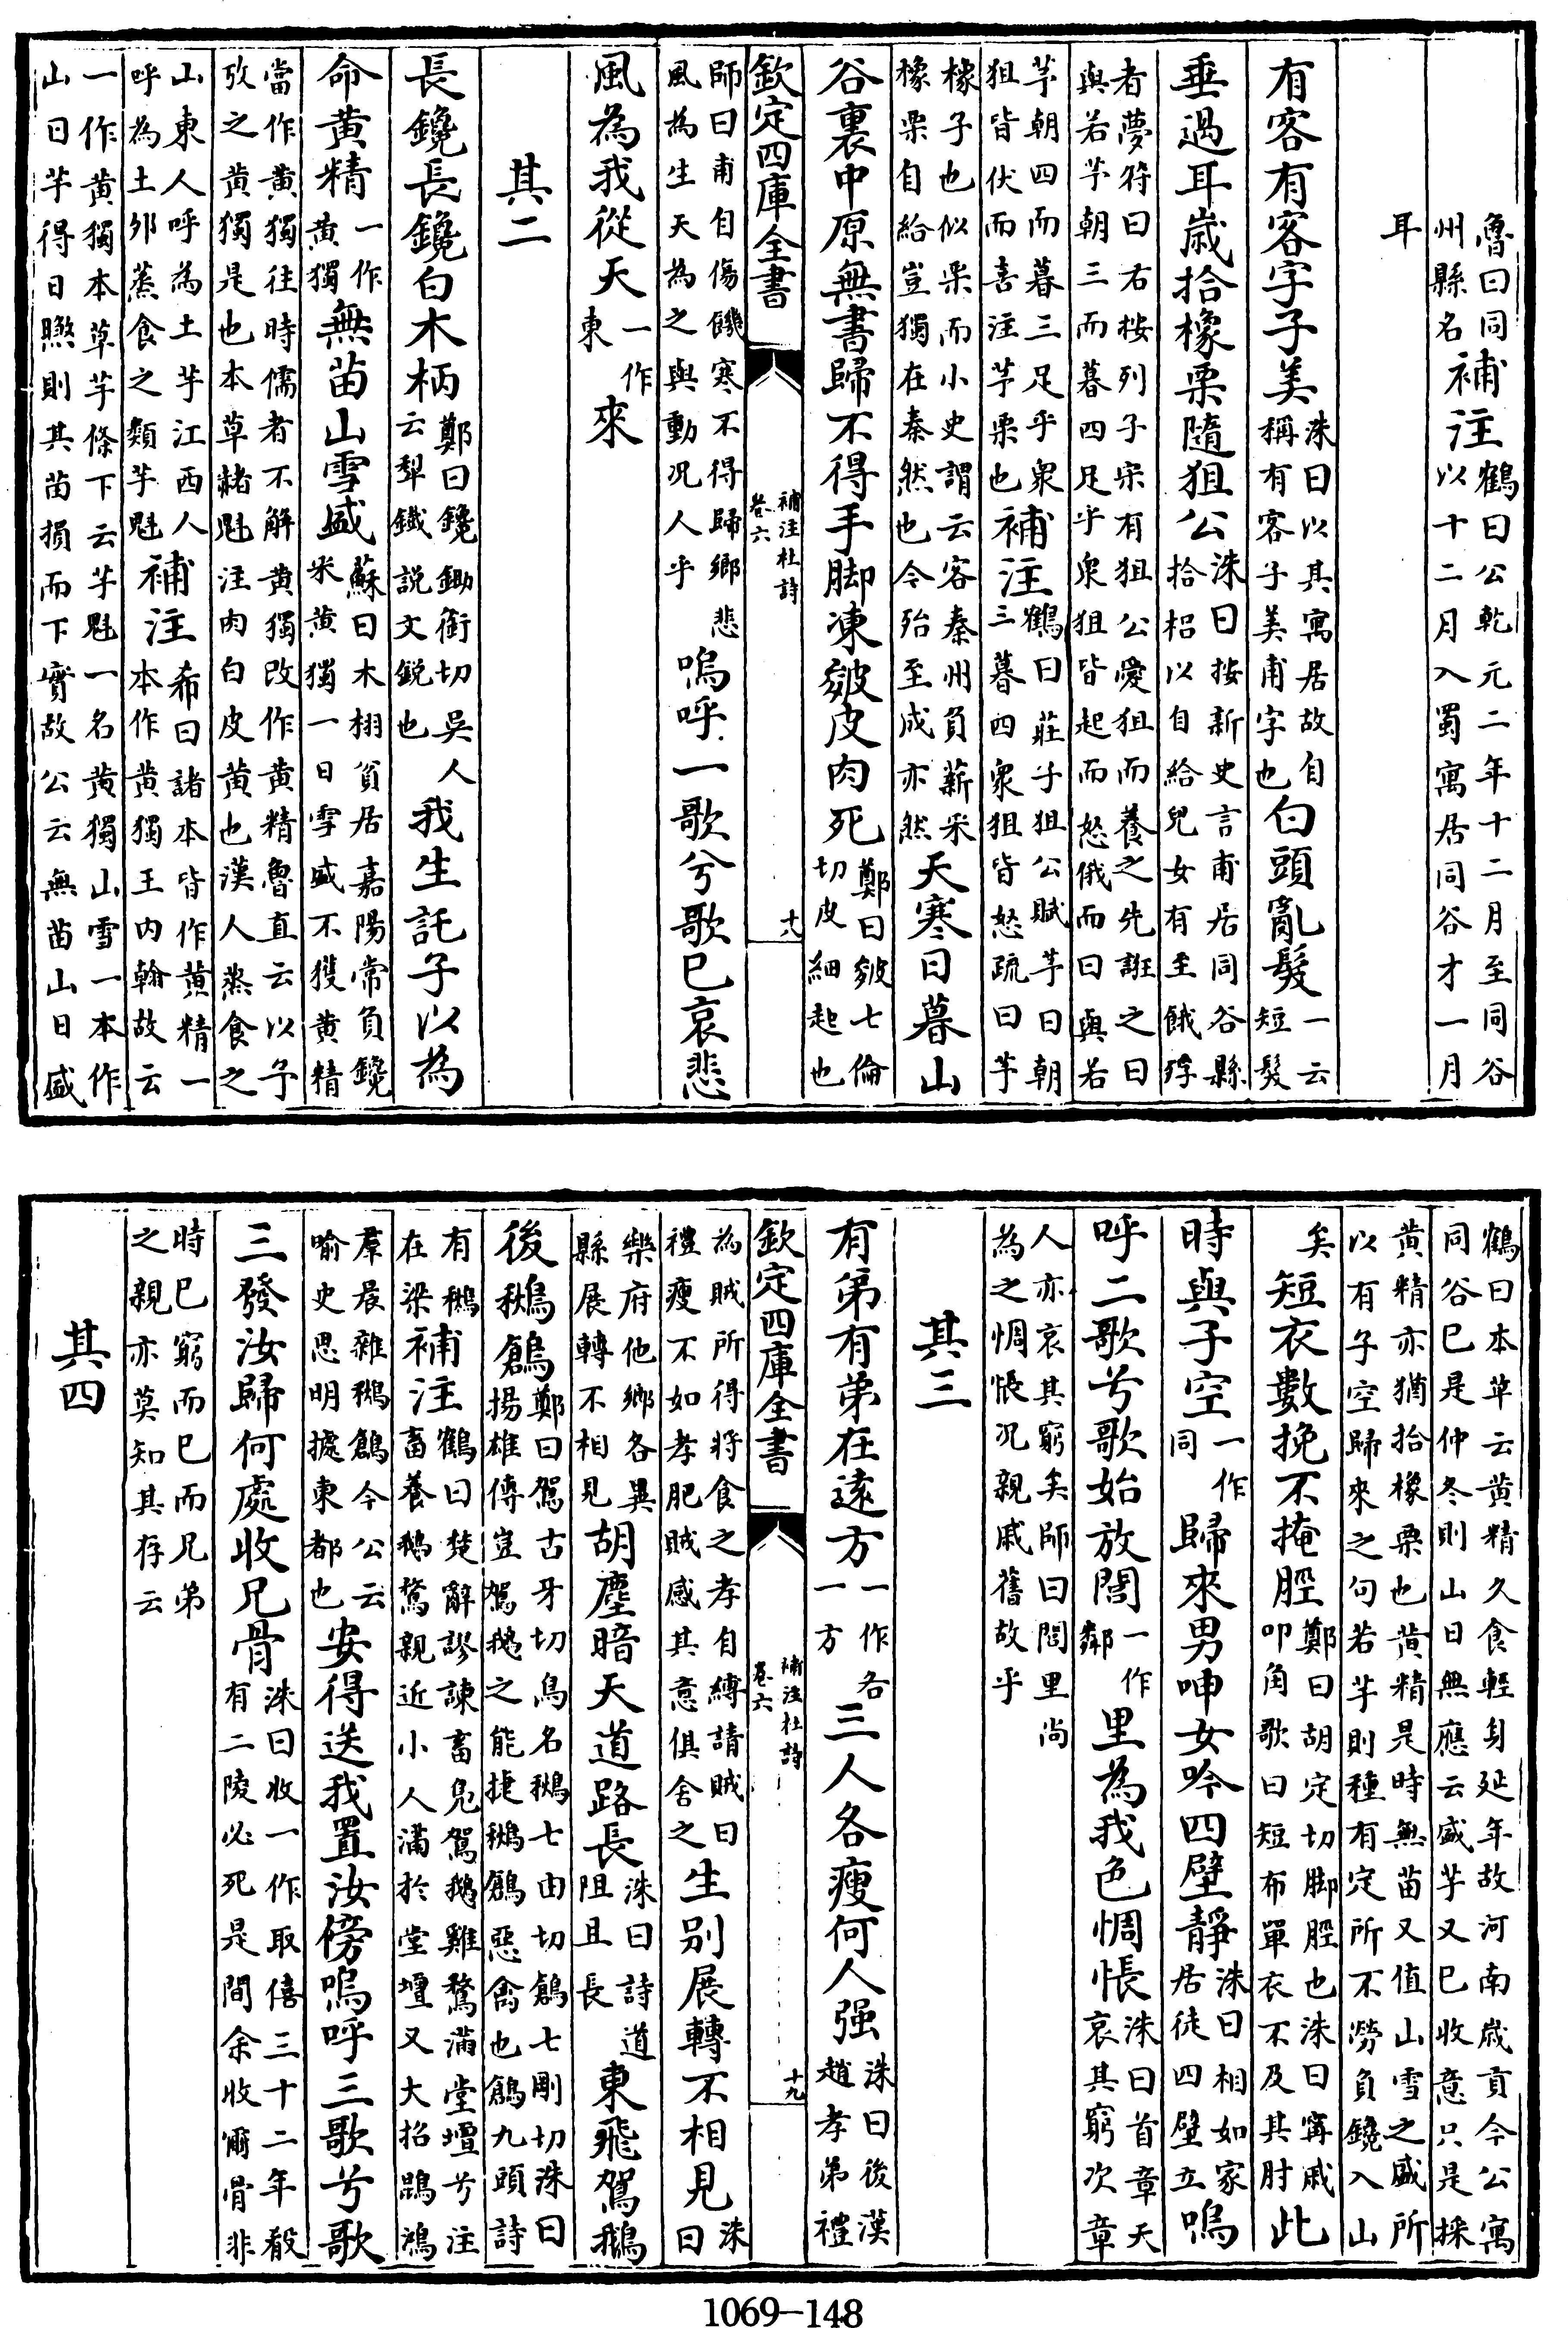 魯曰同谷州縣名補注鶴曰公乾元二年十二月至同谷以十二月入蜀寓居同谷才一月
耳
有客有客字子美洙曰以其寓居故自稱有客子美甫字也白頭亂髮一云短髮
垂過耳歲拾橡栗隨狙公洙曰按新史言甫居同谷縣拾梠以自給兒女有至餓殍
者夢符曰右按列子宋有狙公愛狙而養之先誑之曰與若芧朝三而暮四足乎衆狙皆起而怒俄而曰與若
芧朝四而暮三足乎衆狙皆伏而喜注芧栗也補注鶴曰莊子狙公賦芧曰朝三暮四衆狙皆怒疏曰芧
橡子也似栗而小史謂云客秦州負薪米橡栗自給豈獨在秦然也今殆至成亦然天寒日暮山
谷裏中原無書歸不得手脚凍皴皮肉死鄭曰皴七倫切皮細起也
欽定四庫全書 補注杜詩 卷六 十八
師曰甫自傷饑寒不得歸鄉悲風為生天為之與動况人乎嗚呼一歌兮歌已哀悲
風為我從天一作東來
其二
長鑱長鑱白木柄鄭曰鑱鋤銜切吳人云犁鐵説文鋭也我生託子以為
命黄精一作黄獨無苗山雪盛蘇曰木栩貧居嘉陽常負鑱米黄獨一日雪盛不獲黄精
當作黄獨往時儒者不解黄獨改作黄精魯直云以予攷之黄獨是也本草赭魁注肉白皮黄也漢人蒸食之
山東人呼為土芋江西人呼為土卵蒸食之類芋魁補注希曰諸本皆作黄精一本作黄獨王内翰故云
一作黄獨本草芋條下云芋魁一名黄獨山雪一本作山日芋得日㬠則其苗損而下實故公云無苗山日盛
鶴曰本草云黄精久食輕身延年故河南歲貢今公寓同谷巳是仲冬則山日無應云盛芋又巳收意只是採
黄精亦猶拾橡栗也黄精是時無苗又值山雪之盛所以有子空歸來之句若芋則種有定所不勞負鑱入山
矣短衣數挽不掩脛鄭曰胡定切脚脛也洙曰甯戚叩角歌曰短布單衣不及其肘此
時與子空一作同歸來男呻女吟四壁靜洙曰相如家居徒四壁立嗚
呼二歌兮歌始放閭一作鄰里為我色惆悵洙曰首章天哀其窮次章
人亦哀其窮矣師曰閭里尚為之惆悵况親戚舊故乎
其三
有弟有弟在遠方一作各一方三人各瘦何人强洙曰後漢趙孝弟禮
欽定四庫全書 補注杜詩 卷六 十九
為賊所得將食之孝自縛請賊曰禮瘦不如孝肥賊感其意俱舍之生别展轉不相見洙曰
樂府他鄉各異縣展轉不相見胡塵暗天道路長洙曰詩道阻且長東飛駕鵝
後鶖鶬鄭曰駕古牙切鳥名鶖七由切鶬七剛切洙曰揚雄傳豈駕鵝之能捷鶖鶬惡禽也鶬九頭詩
有鶖在梁補注鶴曰楚辭謬諫畜鳬駕鵝雞鶩滿堂壇兮注畜養鵝鶩親近小人滿於堂壇又大招鵾鴻
羣晨雜鶖鶬今公云喻史思明據東都也安得送我置汝傍嗚呼三歌兮歌
三發汝歸何處收兄骨洙曰收一作取僖三十二年殽有二陵必死是間余收爾骨非
時巳窮而巳而兄弟之親亦莫知其存云
其四
1069-148